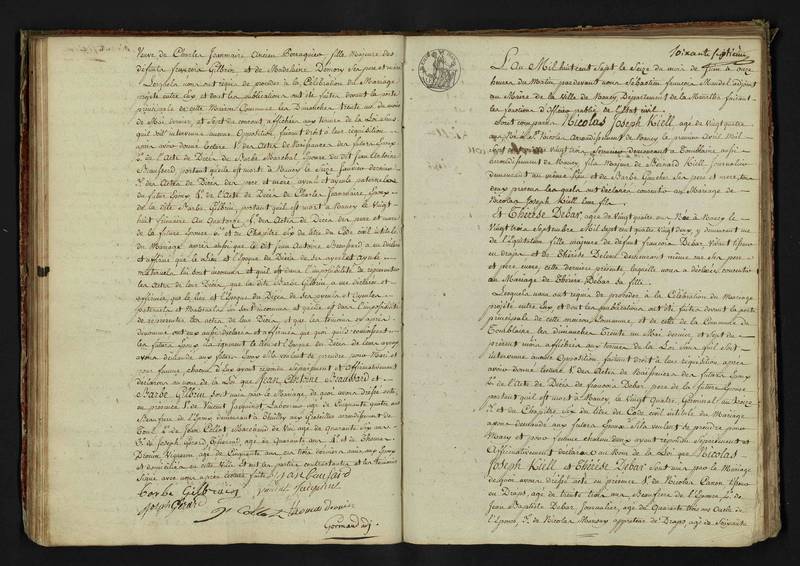 Veuve de Charles Jeannaire ancien Perruquier fille majeure des
défunts françois Gilbrin et de Madeleine Demory ses pere et mere
Lesquels nous ont requis de proceder à la Célébration du Mariage
projetté entre eux et dont les publications ont été faites devant la porte
principale de cette Maison Commune les Dimanches trente un du mois
de Mai dernier, et Sept du courant
opposition, faisant droit à leur réquisition
après avoir donné lecture 1° des Actes de Naissances des futurs Epoux
2° de l'Acte de Décès de Barbe Marchal Epouse du dit Jean Antoine
Beaussard portant qu'elle est morte à Nancy le Seize Janvier dernier
3° des Actes de Décès des pere et mere, ayeul et ayeule paternels
du futur Epoux 4° de l'Acte de Décès de Charles Jeannaire Epoux
de la dite Barbe Gilbrin, portant qu'il est mort à Nancy le Vingt
huit frimaire An quatorze 5° des Actes de Décès des pere et mere
de la future Epouse 6° et du Chapitre six du titre du Code civil intitulé
du Mariage après aussi que le dit Jean Antoine Beaussard a déclaré
et affirmé que le lieu et l'époque du Décès de ses ayeul et ayeule
maternels lui sont inconnus et qu'il est dans l'impossibilité de représenter
les actes de leur Décès, que la dite Barbe Gilbrin a déclaré et
affirmé, que le lieu et l'époque du Décès de ses ayeuls et ayeules
paternels et Maternels lui sont inconnus et qu'elle est dans l'impossibilité
de représenter les actes de leur Décès et que les témoins ci après
dénommés ont aussi déclaré et affirmé que quoi qu'ils connoissent
les futurs Epoux ils ignorent le lieu et l'époque du Décès de leurs ayeux
avons demandé aux futurs Epoux s'ils veulent se prendre pour Mari et
pour femme, chacun d'eux ayant répondu Séparément et Affirmativement
déclarons au nom de la Loi que Jean Antoine Beaussard et
Barbe Gilbrin sont unis par le Mariage, de quoi avons dressé acte,
en présence 1° de Vincent Jacquinet Laboureur agé de Cinquante quatre ans
Beau frere de l'Epoux demeurant à
Toul 2° de Jean Collot Marchand de Vin agé de Quarante six ans
3° de Joseph Gérard Epicier, agé de Quarante ans 4° et de Thomas
Drouin Vigneron agé de Cinquante ans
et domiciliés en cette Ville et ont les parties contractantes et les témoins
Signé avec nous après lecture faite Jean Beaussard
barbe Gilbrin Vincent Jacquinet
Joseph Gérard
J Collot thomas drouin
Gormand adj.
Soixante septieme
L'an Mil huit cent Sept le Seize du mois de Juin à onze
heures du Matin pardevant nous Sébastien françois Mandel adjoint
au Maire de la Ville de Nancy Département de la Meurthe faisant
les fonctions d'officier public de l'état civil
Sont comparus Nicolas Joseph Kiell, agé de Vingt quatre
ans Né à St Nicolas arrondissement de Nancy le premier avril Mil
sept cent quatre vingt trois demeurant à Tomblaine aussi
arrondissement de Nancy fils Majeur de Bernard Kiell Journalier
demeurant au même lieu et de Barbe Gaucher ses pere et mere, tous
deux présens lesquels ont déclaré consentir au Mariage de
Nicolas Joseph Kiell leur fils
et Thérèse Debar, agée de Vingt quatre ans Née à Nancy le
Vingt trois Septembre Mil Sept cent quatre vingt deux y demeurant rue
de l'Equitation fille majeure de défunt françois Debar, Vivant tisseur
en draps et de Thérèse Beleur demeurant même rue ses pere
et mere, cette derniere présente, laquelle nous a déclaré consentir
au Mariage de Thérèse Debar sa fille
Lesquels nous ont requis de procéder à la Célébration du Mariage
projetté entre eux, et dont les publications ont été faites devant la porte
principale de cette maison Commune, et de celle de la Commune de
Tomblaine les dimanches Trente un Mai dernier, et Sept du
présent mois affichées aux termes de la Loi sans qu'il soit
intervenu aucune Opposition faisant droit à leur réquisition, après
avoir donné lecture 1° des Actes de Naissances des futurs Epoux
2° de l'Acte de Décès de françois Debar, pere de la future Epouse
portant qu'il est mort à Nancy, le Vingt Quatre Germinal An onze
3° et du Chapitre six du titre du Code civil intitulé du Mariage
avons demandé aux futurs Epoux s'ils veulent se prendre pour
Mary et pour femme chacun d'eux ayant répondu Séparément et
Affirmativement déclarons au Nom de la Loi que Nicolas
Joseph Kiell et Thérèse Debar sont unis par le Mariage
de quoi avons dressé acte en présence 1° de Nicolas Caron tisseur
en Draps, agé de trente trois ans Beau frere de l'Epouse 2° de
Jean Baptiste Debar Journalier, agé de Quarante trois ans Oncle de
l'Epouse, 3° de Nicolas Marsony appreteur de Draps, agé de Soixante